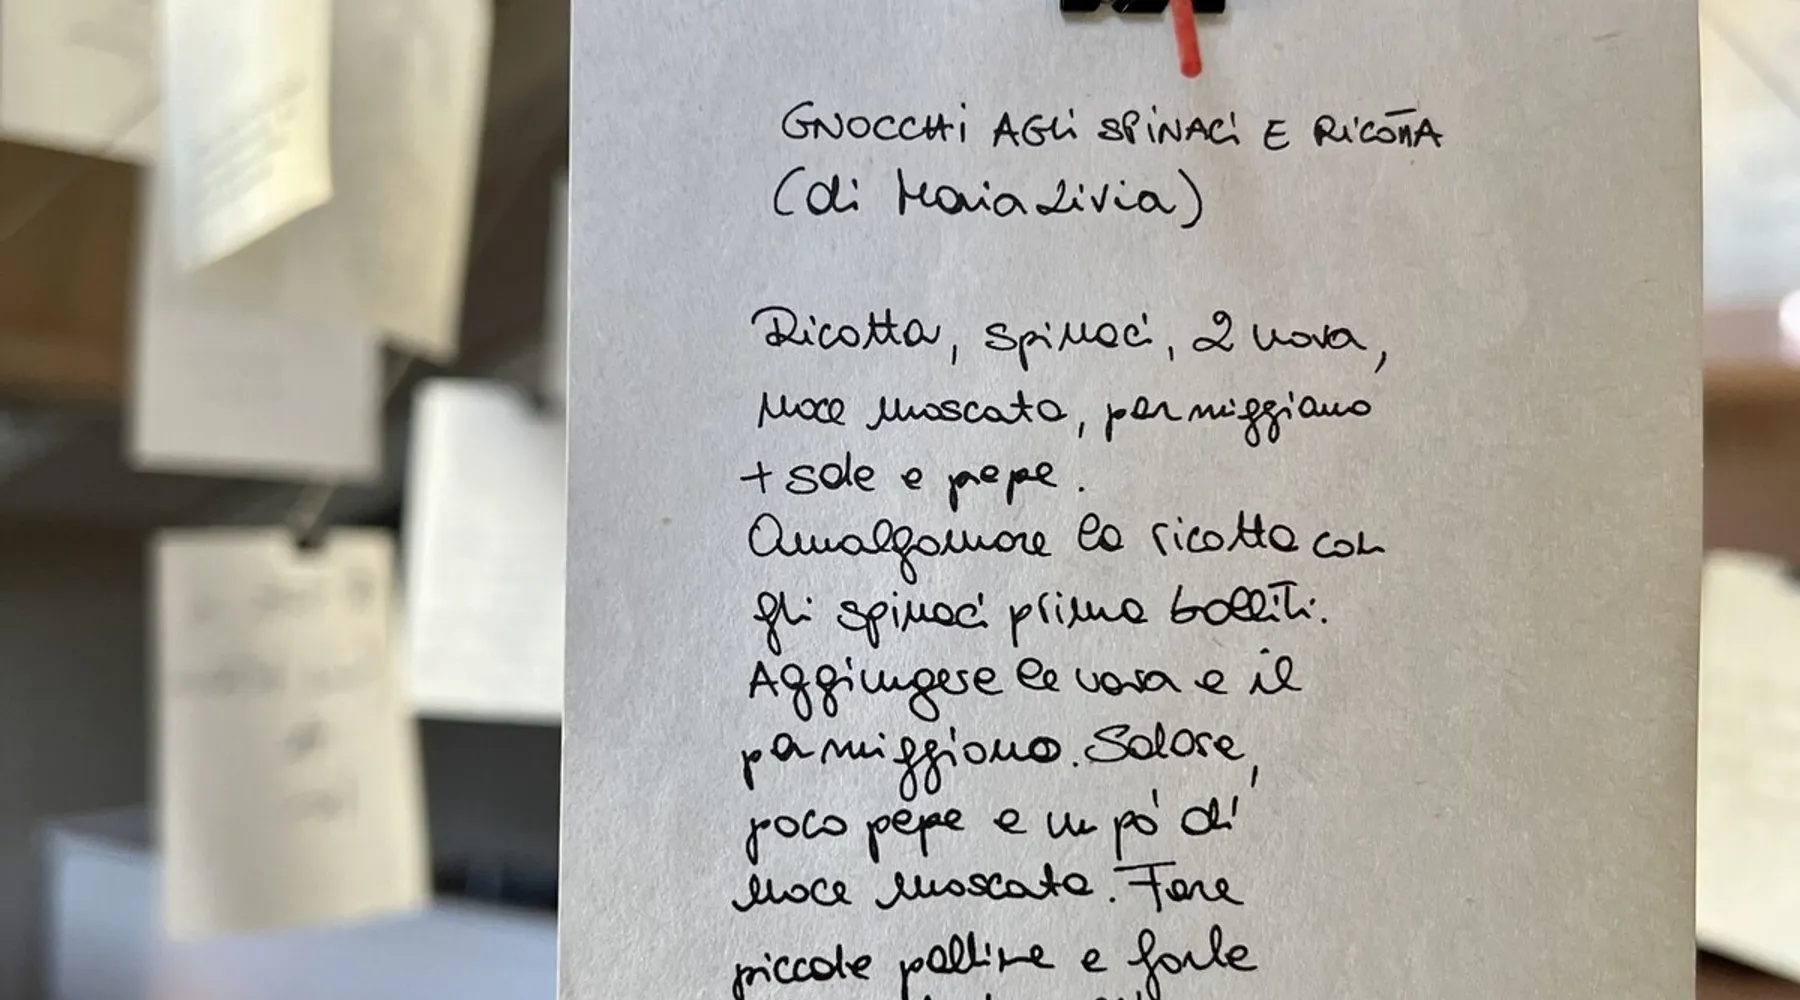 GNOCCHI AGLI SPINACI E RICOTTA
(di Maria Livia)
Ricotta, spinaci, 2 uova,
noce moscata, parmiggiano
+ sale e pepe.
Amalgamare la ricotta con
gli spinaci prima bolliti.
Aggiungere le uova e il
parmiggiano. Salare,
poco pepe e un pò di
noce moscata. Fare
piccole palline e farle